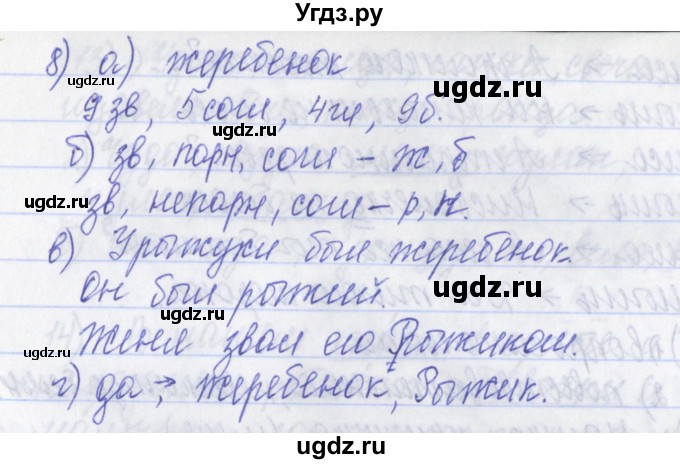 Угдз.ру
8) а) жеребенок
9 зв, 5 согл, 4 гл, 9 б.
б) зв, парн, согл - ж, б
зв, непарн, согл - р, н.
в) У рыжухи был жеребенок.
Он был рыжий.
Женя звал его Рыжиком.
г) да, жеребенок, Рыжик.
ugdz.ru
ugdz.ru
ugdz.ru
ugdz.ru
ugdz.ru
ugdz.ru
ugdz.ru
ugdz.ru
ugdz.ru
ugdz.ru
ugdz.ru
ugdz.ru